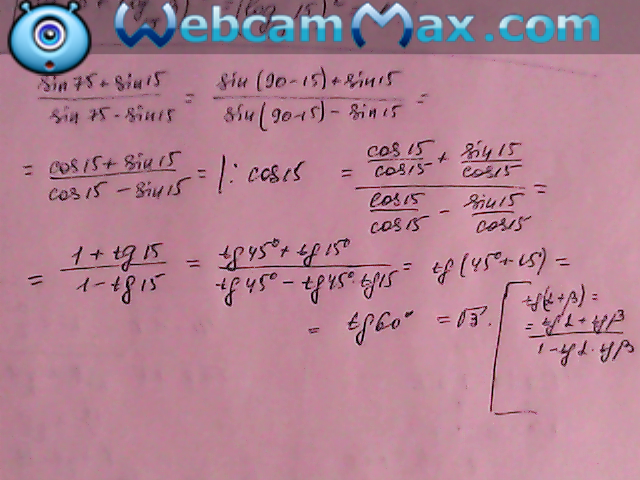 WebcamMax.com
sin 75 + sin 15 / sin 75 - sin 15 = sin (90 - 15) + sin 15 / sin (90 - 15) - sin 15 =
= cos 15 + sin 15 / cos 15 - sin 15 = | : cos 15 = cos 15 / cos 15 + sin 15 / cos 15 / cos 15 / cos 15 - sin 15 / cos 15 =
= 1 + tg 15 / 1 - tg 15 = tg 45° + tg 15° / tg 45° - tg 45° · tg 15 = tg (45° + 15°) =
= tg 60° = √3.
tg(α + β) =
= tg α + tg β / 1 - tg α · tg β